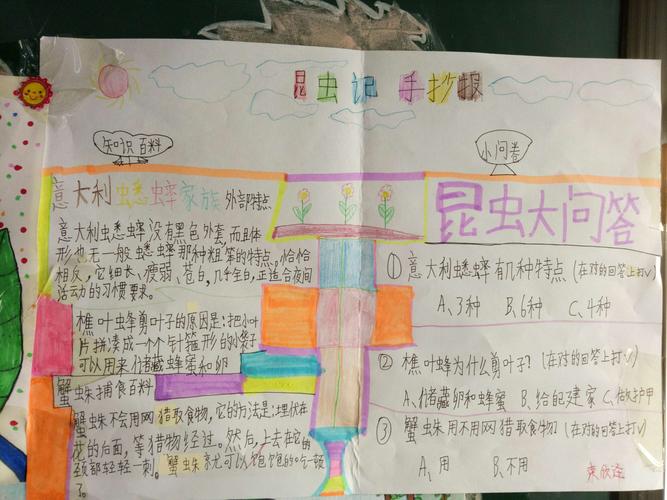 昆虫记 手抄报
知识百料
意大利蟋蟀家族 外部特点
意大利虫悉蟀没有黑色外套,而且体
形也无一般蟋蟀那种粗笨的特点。恰恰
相反,它细长、瘦弱、苍白,几乎全白,正适合夜间
活动的习惯要求。
樵叶虫蜂剪叶子的原因是:把小叶
片拼凑成一个个针箍形的小袋子
可以用来储藏蜂蜜和卵
蟹虫蛛捕食百料
蟹蛛不会用网猎取食物,它的方法是:埋伏在
花的后面,等猎物经过。然后,上去在它的
颈部轻轻一刺。蟹虫蛛就可以饱饱的吃一顿
了。
小问卷
昆虫大问答
①意大利蟋蟀有几种特点(在对的回答上打√)
A、3种 B、6种 C、4种
②樵叶蜂为什么剪叶子?(在对的回答上打√)
A、储藏卵和蜂蜜 B、给自己建家 C、做护甲
③蟹虫蛛用不用网猎取食物?(在对的回答上打√)
A、用 B、不用